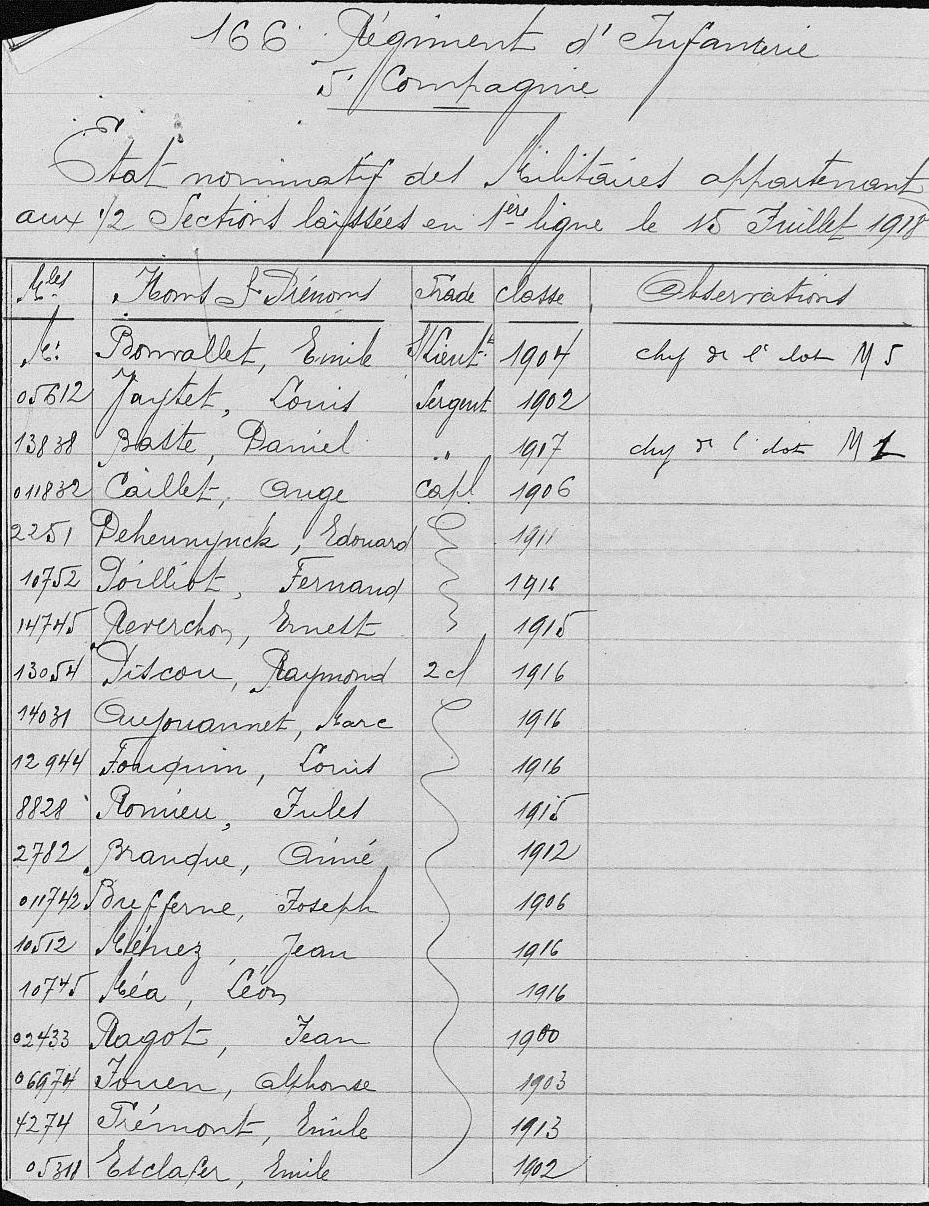 166 Régiment d'Infanterie
5 Compagnie
Etat nominatif des Militaires appartenant
aux 1/2 Sections laissées en 1ère ligne le 15 Juillet 1918
Mles Noms & Prénoms Grade classe Observations
Mr Bonvallet, Emile S/Lieut 1904 chef de l'ilot M 5
05612 Jaytet, Louis Sergent 1902
13838 Baste, Daniel " 1907 chef de l'ilot M 1
011832 Caillet, Ange Capl 1906
2251 Deheunynck, Edouard 1911
10752 Poilliot, Fernand 1916
14745 Reverchon, Ernest 1915
13054 Piscou, Raymond 2 cl 1916
14031 Aujouannet, Marc 1916
12944 Fouquin, Louis 1916
8828 Romieu, Jules 1915
2782 Branque, Aimé 1912
011742 Brefferne, Joseph 1906
10512 Ménez, Jean 1916
10745 Méa, Léon 1916
02433 Ragot, Jean 1900
06974 Jouen, Alphonse 1903
4274 Trémont, Emile 1913
05318 Esclafer, Emile 1902